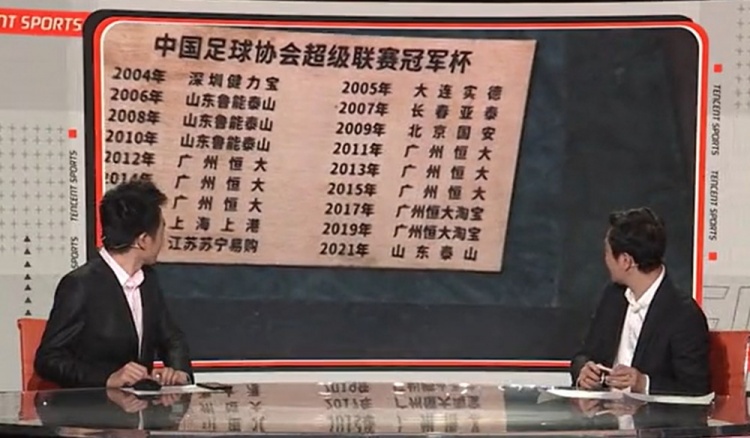 ENT SPORTS
中国足球协会超级联赛冠军杯
2004年 深圳健力宝 2005年 大连实德
2006年 山东鲁能泰山 2007年 长春亚泰
2008年 山东鲁能泰山 2009年 北京国安
2010年 山东鲁能泰山 2011年 广州恒大
2012年 广州恒大 2013年 广州恒大
2014年 广州恒大 2015年 广州恒大
广州恒大 2017年 广州恒大淘宝
上海上港 2019年 广州恒大淘宝
江苏苏宁易购 2021年 山东泰山
TENCENT SPORTS
TENCENT SPORTS
TENCENT SPORTS